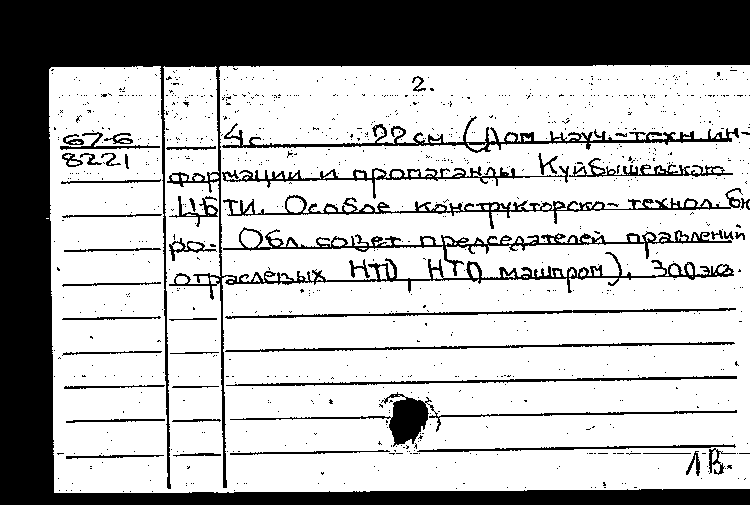 2.
67-6 4с 22 см (Дом науч.-техн. ин-
8221
формации и пропаганды Куйбышевского
ЦБТИ. Особое конструкторско-технол. бю
ро. Обл. совет председателей правлений
отраслевых НТО, НТО машпром). 300 экз.
1В.